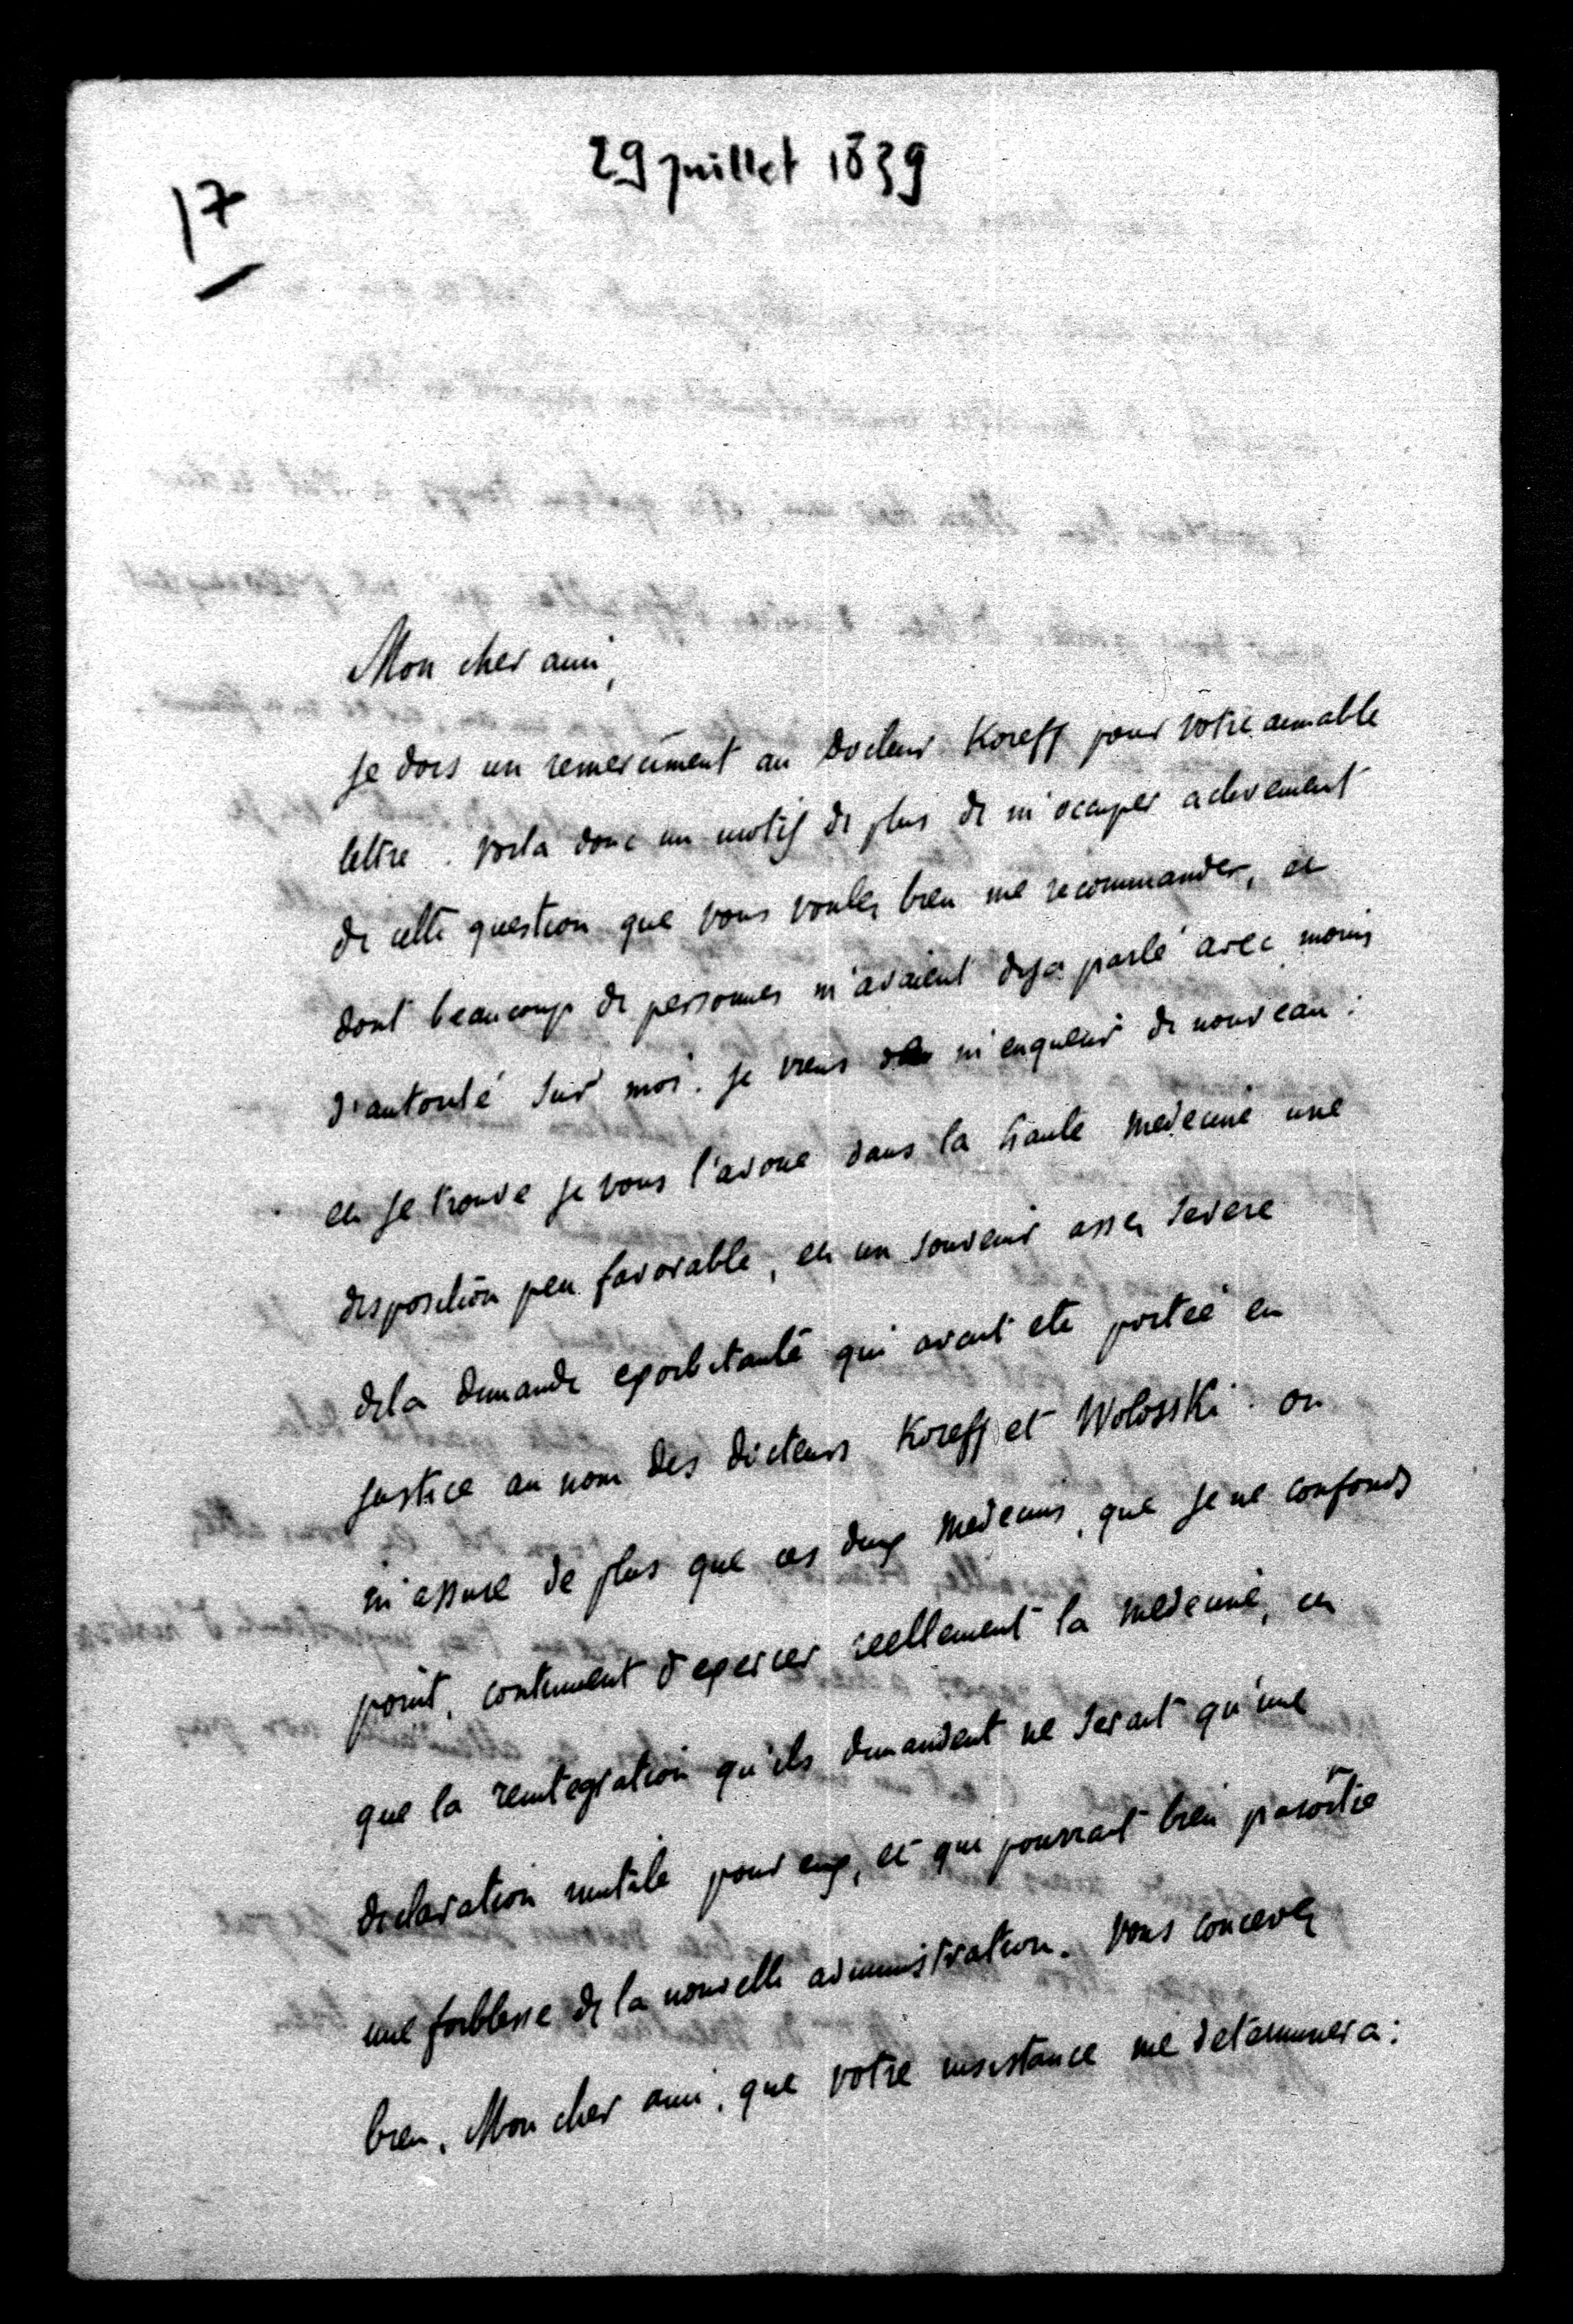 29 juillet 1839
17
Mon cher ami,
je dois un remerciment au Docteur Koreff pour votre aimable
lettre. Voila donc un motif de plus de m'occuper activement
de cette question que vous voulez bien me recommander, et
dont beaucoup de personnes m'avaient deja parlé avec moins
d'autorité sur moi. je viens de m'enquerir de nouveau :
et je trouve je vous l'avoue dans la haute medecine une
disposition peu favorable, et un souvenir assez severe
de la demande exorbitante qui avait ete portée en
justice au nom des docteurs Koreff et Wolosski. on
m'assure de plus que ces deux medecins, que je ne confonds
point, continuent d'exercer reellement la medecine, et
que la reintegration qu'ils demandent ne serait qu'une
declaration inutile pour eux, et qui pourrait bien paroître
une foiblesse de la nouvelle administration. Vous concevez
bien, Mon cher ami, que votre insistance me determinera :